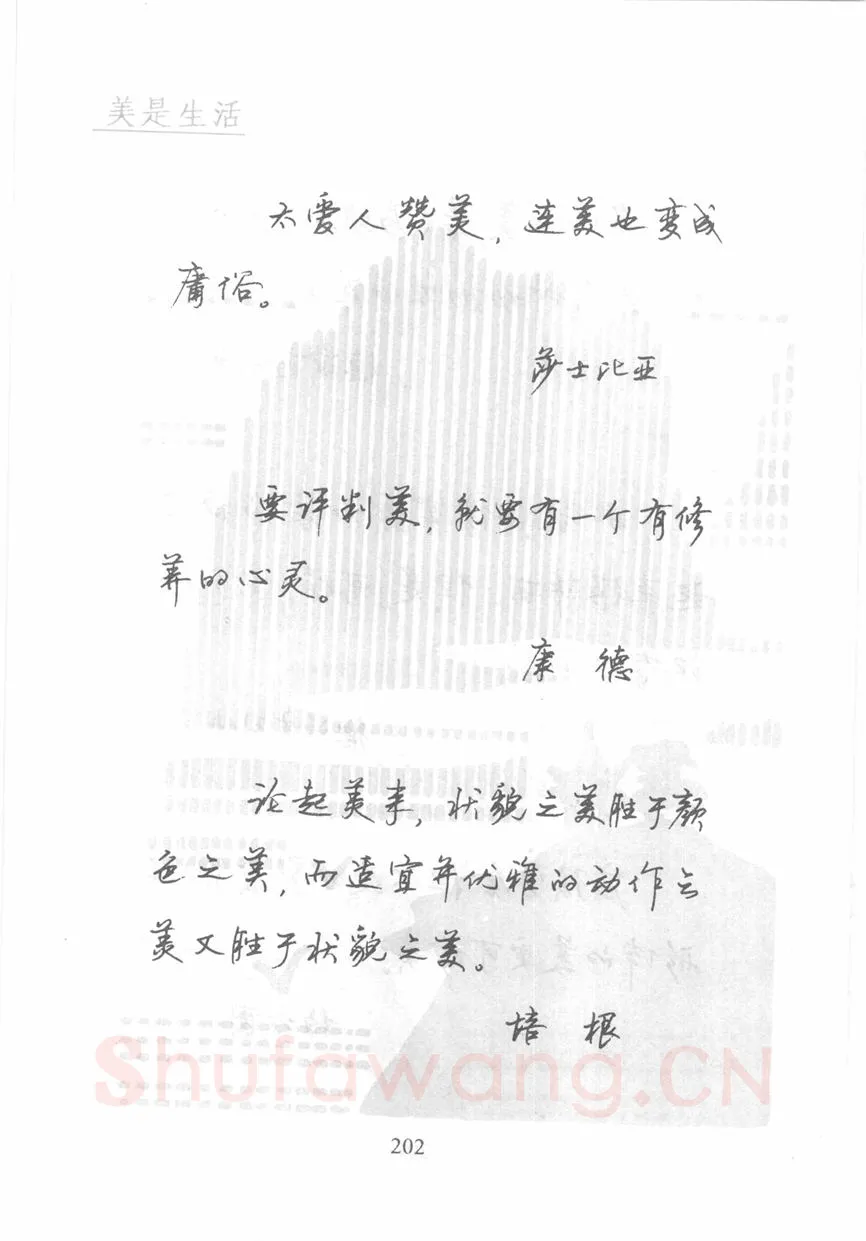 美是生活
太爱人赞美，连美也变成
庸俗。
莎士比亚
要评判美，就要有一个有修
养的心灵。
康 德
论起美来，状貌之美胜于颜
色之美，而适宜并优雅的动作之
美又胜于状貌之美。
培 根
Shufawang.CN
202